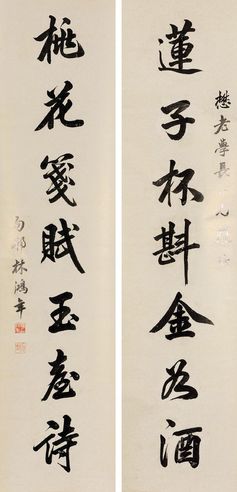 懋老學長兄
蓮子杯斟金谷酒
桃花箋賦玉臺詩
林鴻年